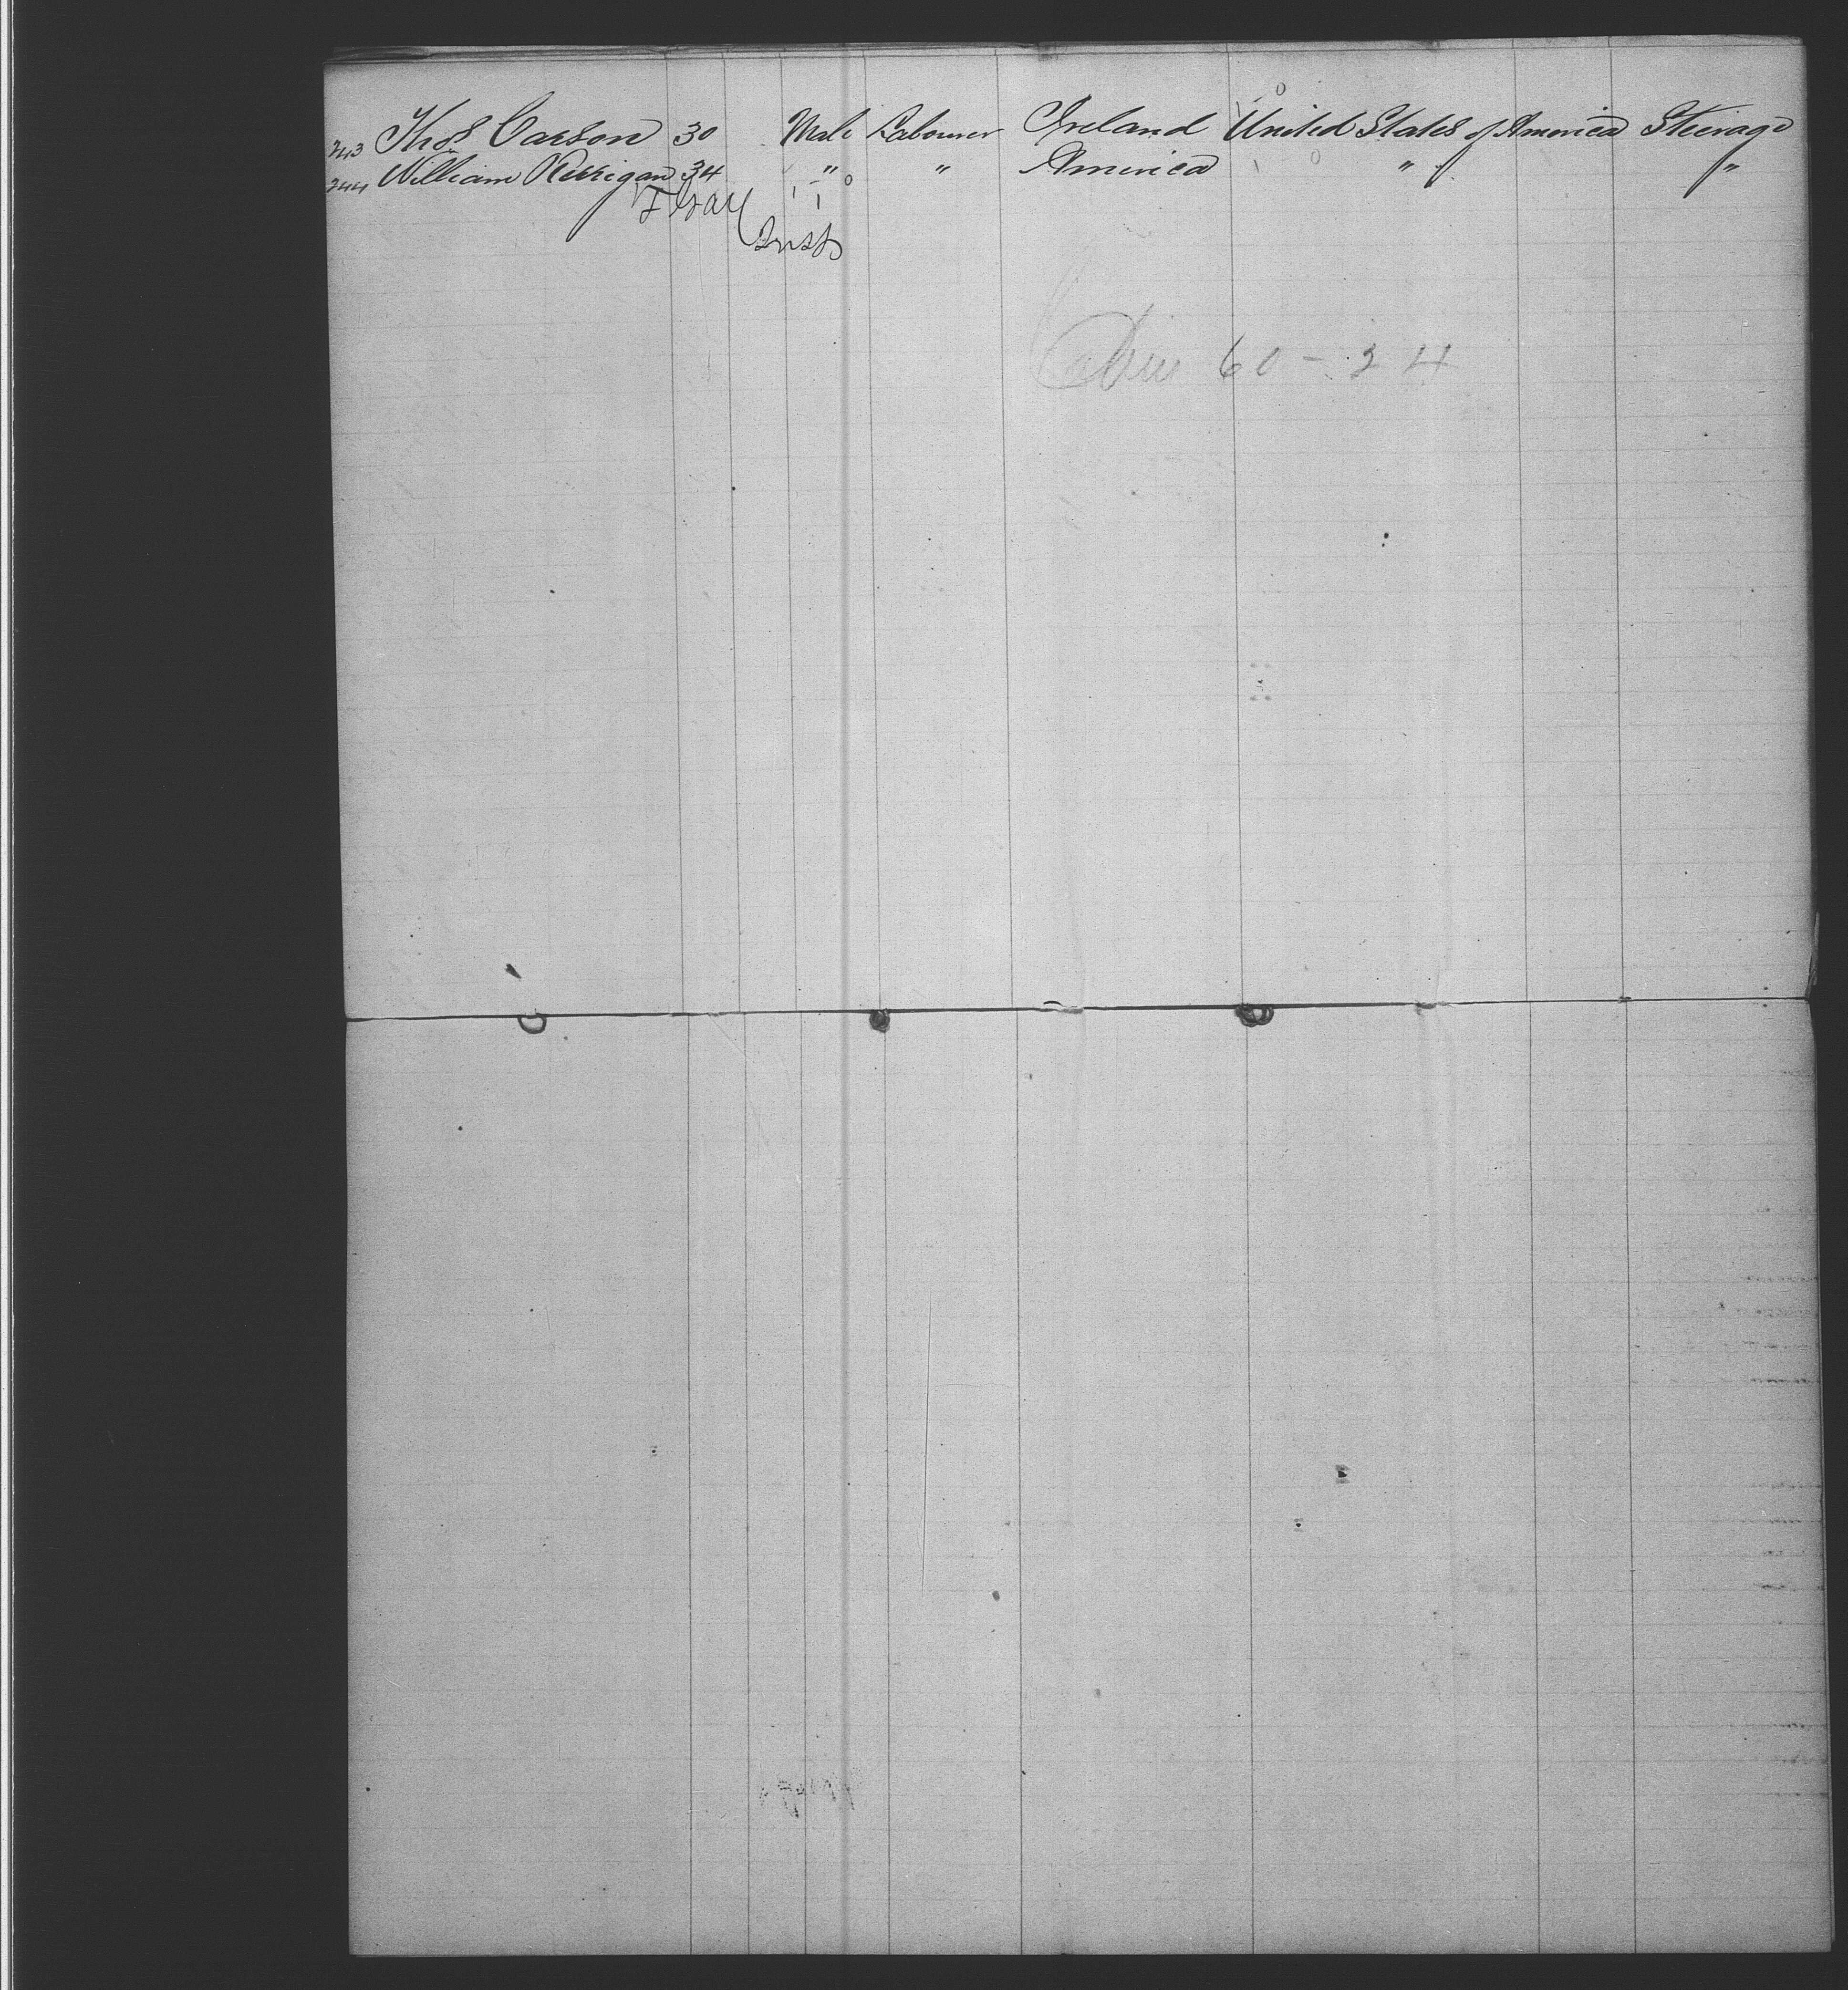 243 Thos Carson 30 Male Labourer Ireland United States of America Steerage
244 William Kerrigan 34 " " America " "
Insp
60 - 24